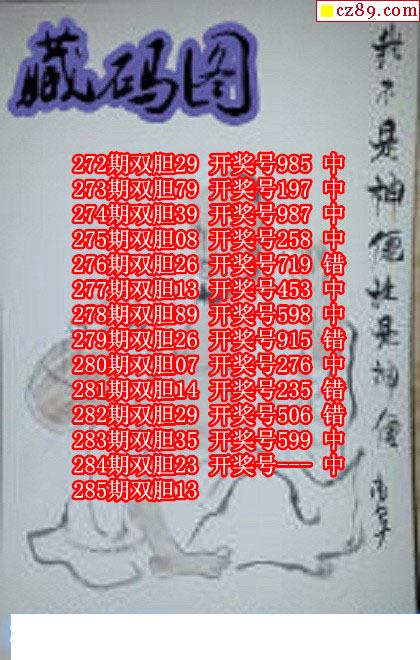 cz89.com
藏码图
我不是神仙就是神仙
272期双胆29 开奖号985 中
273期双胆79 开奖号197 中
274期双胆39 开奖号987 中
275期双胆08 开奖号258 中
276期双胆26 开奖号719 错
277期双胆13 开奖号453 中
278期双胆89 开奖号598 中
279期双胆26 开奖号915 错
280期双胆07 开奖号276 中
281期双胆14 开奖号235 错
282期双胆29 开奖号506 错
283期双胆35 开奖号599 中
284期双胆23 开奖号--- 中
285期双胆13